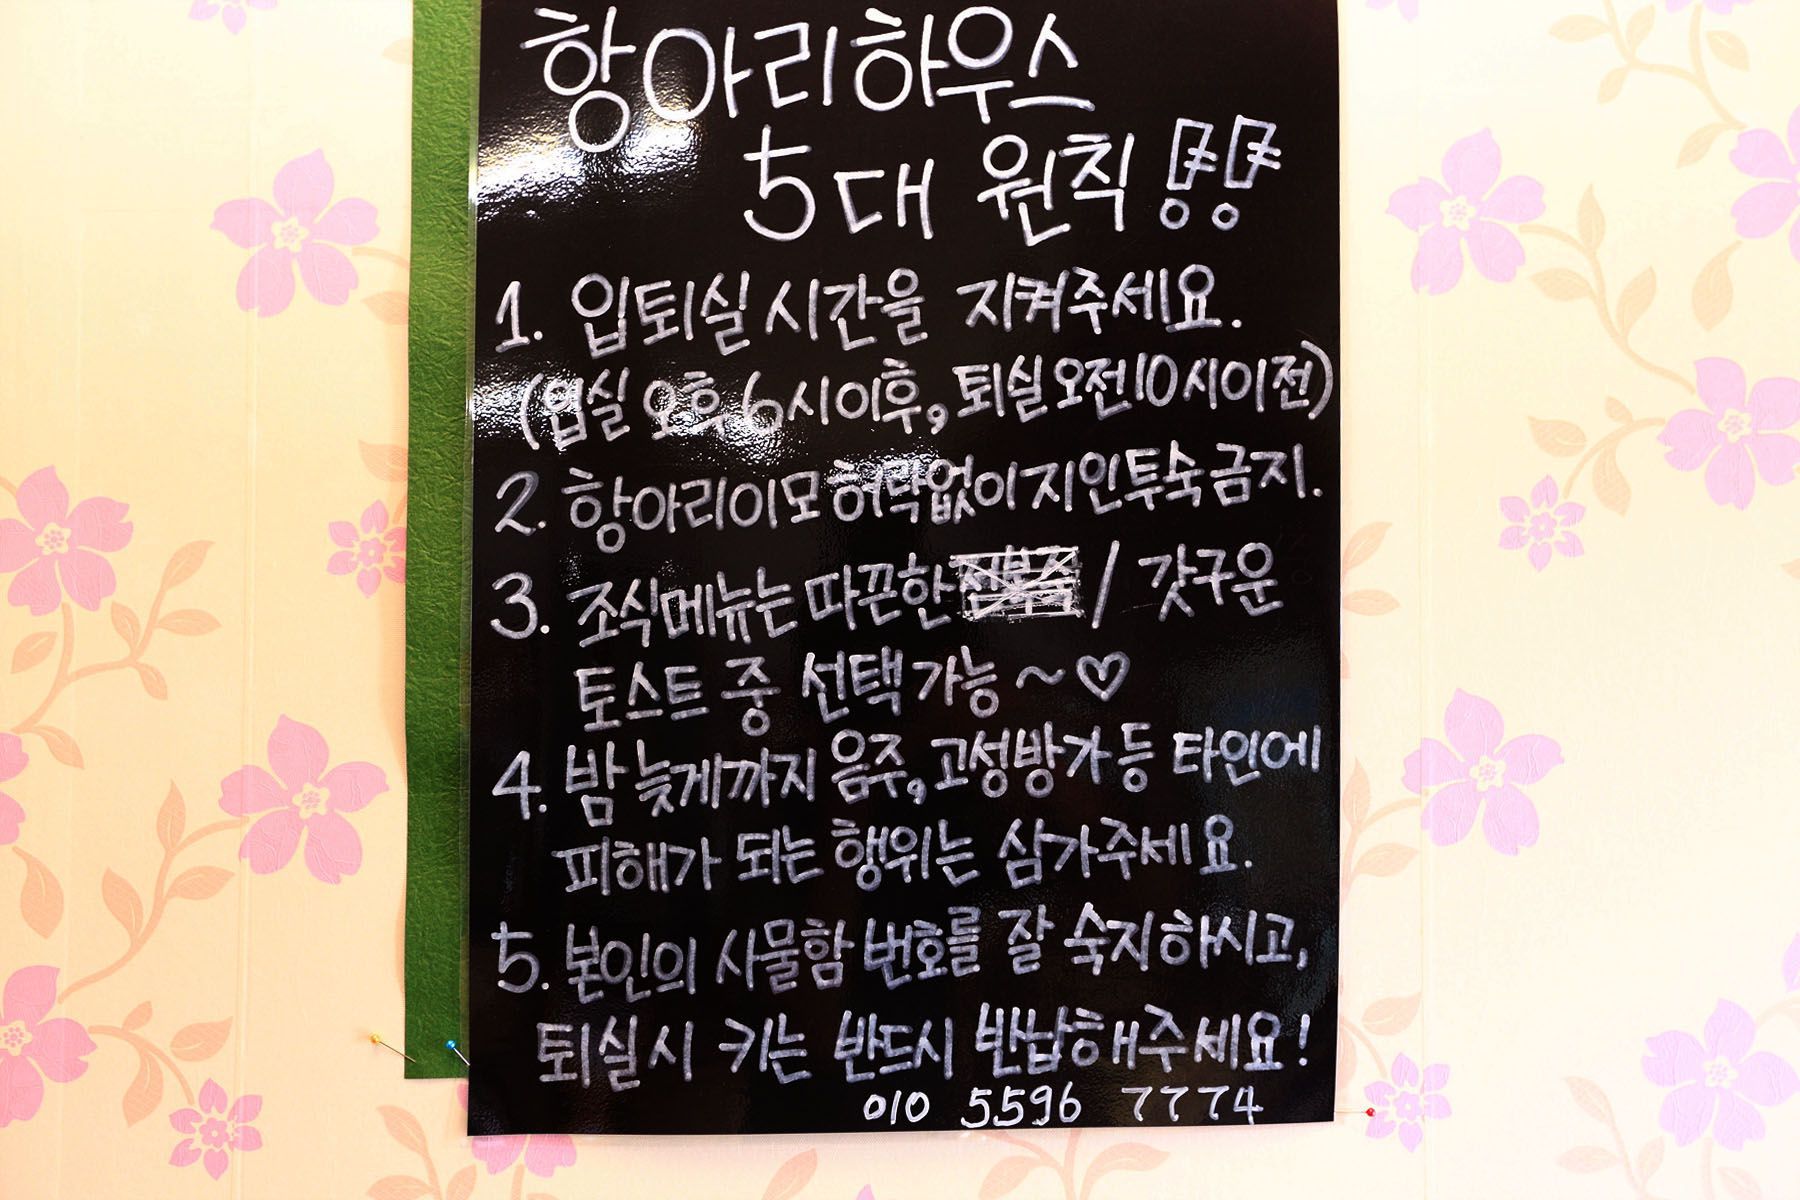 항아리하우스
5대 원칙 !!
1. 입퇴실 시간을 지켜주세요.
(입실 오후 6시 이후, 퇴실 오전 10시 이전)
2. 항아리이모 허락없이 지인투숙금지.
3. 조식메뉴는 따끈한 전복죽 / 갓구운
토스트 중 선택가능~♡
4. 밤 늦게까지 음주, 고성방가 등 타인에
피해가 되는 행위는 삼가주세요.
5. 본인의 사물함 번호를 잘 숙지하시고,
퇴실시 키는 반드시 반납해주세요!
010 5596 7774